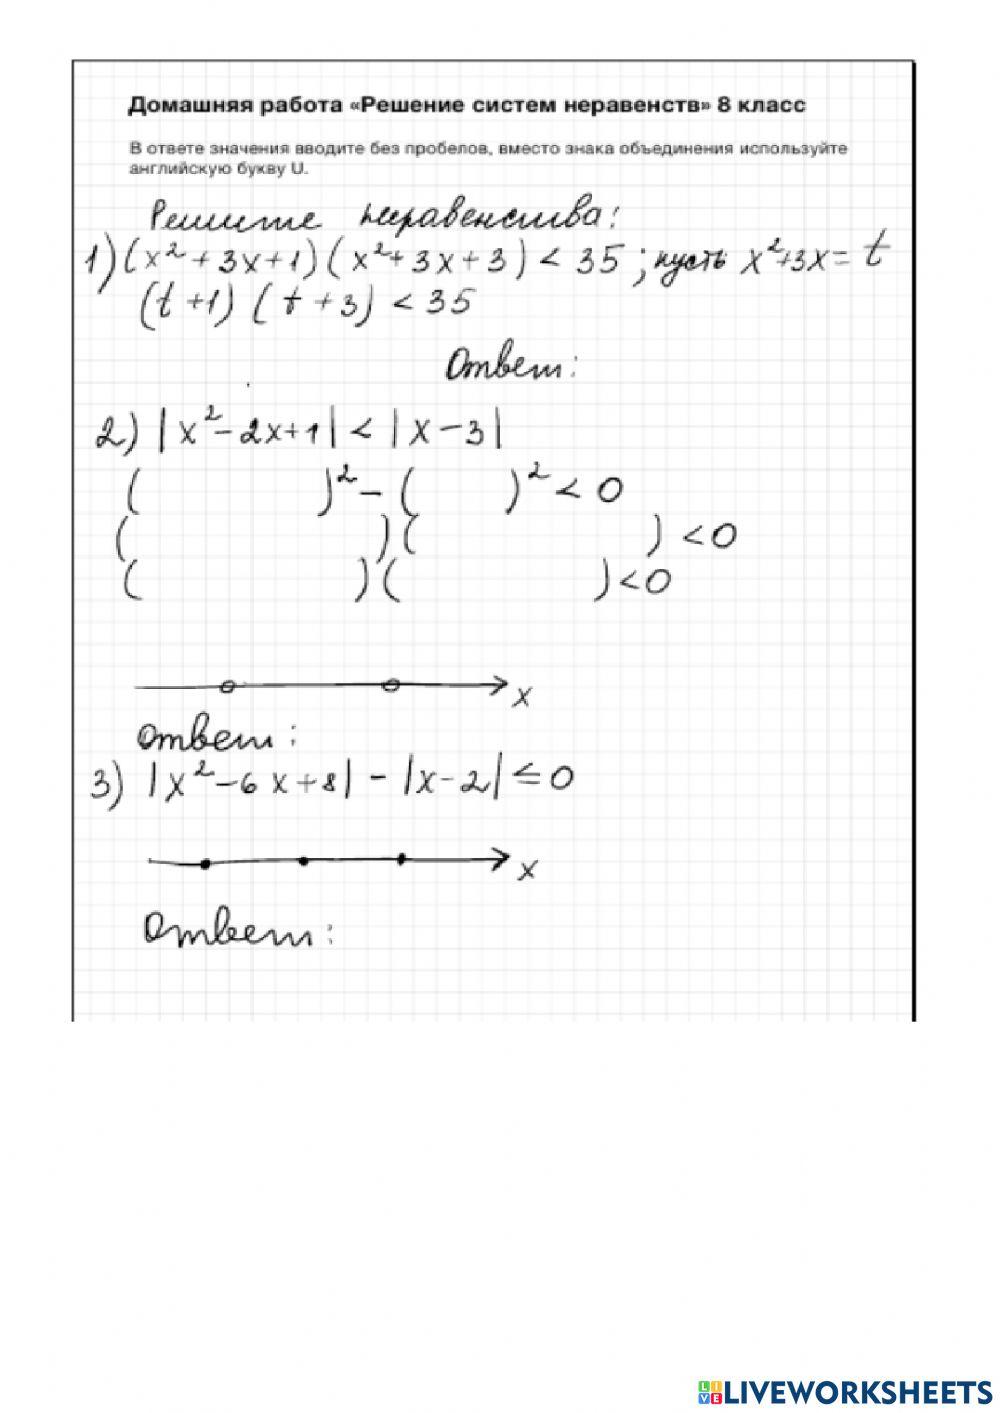 Домашняя работа «Решение систем неравенств» 8 класс
В ответе значения вводите без пробелов, вместо знака объединения используйте
английскую букву U.
Решите неравенства:
1) (x² + 3x + 1) ( x² + 3x + 3 ) < 35 ; пусть x² + 3x = t
(t + 1) ( t + 3) < 35
Ответ:
2) | x² - 2x + 1 | < | x - 3 |
( )² - ( )² < 0
( ) ( ) < 0
( ) ( ) < 0
x
Ответ:
3) | x² - 6 x + 8 | - | x - 2 | ≤ 0
x
Ответ:
LIVE LIVEWORKSHEETS